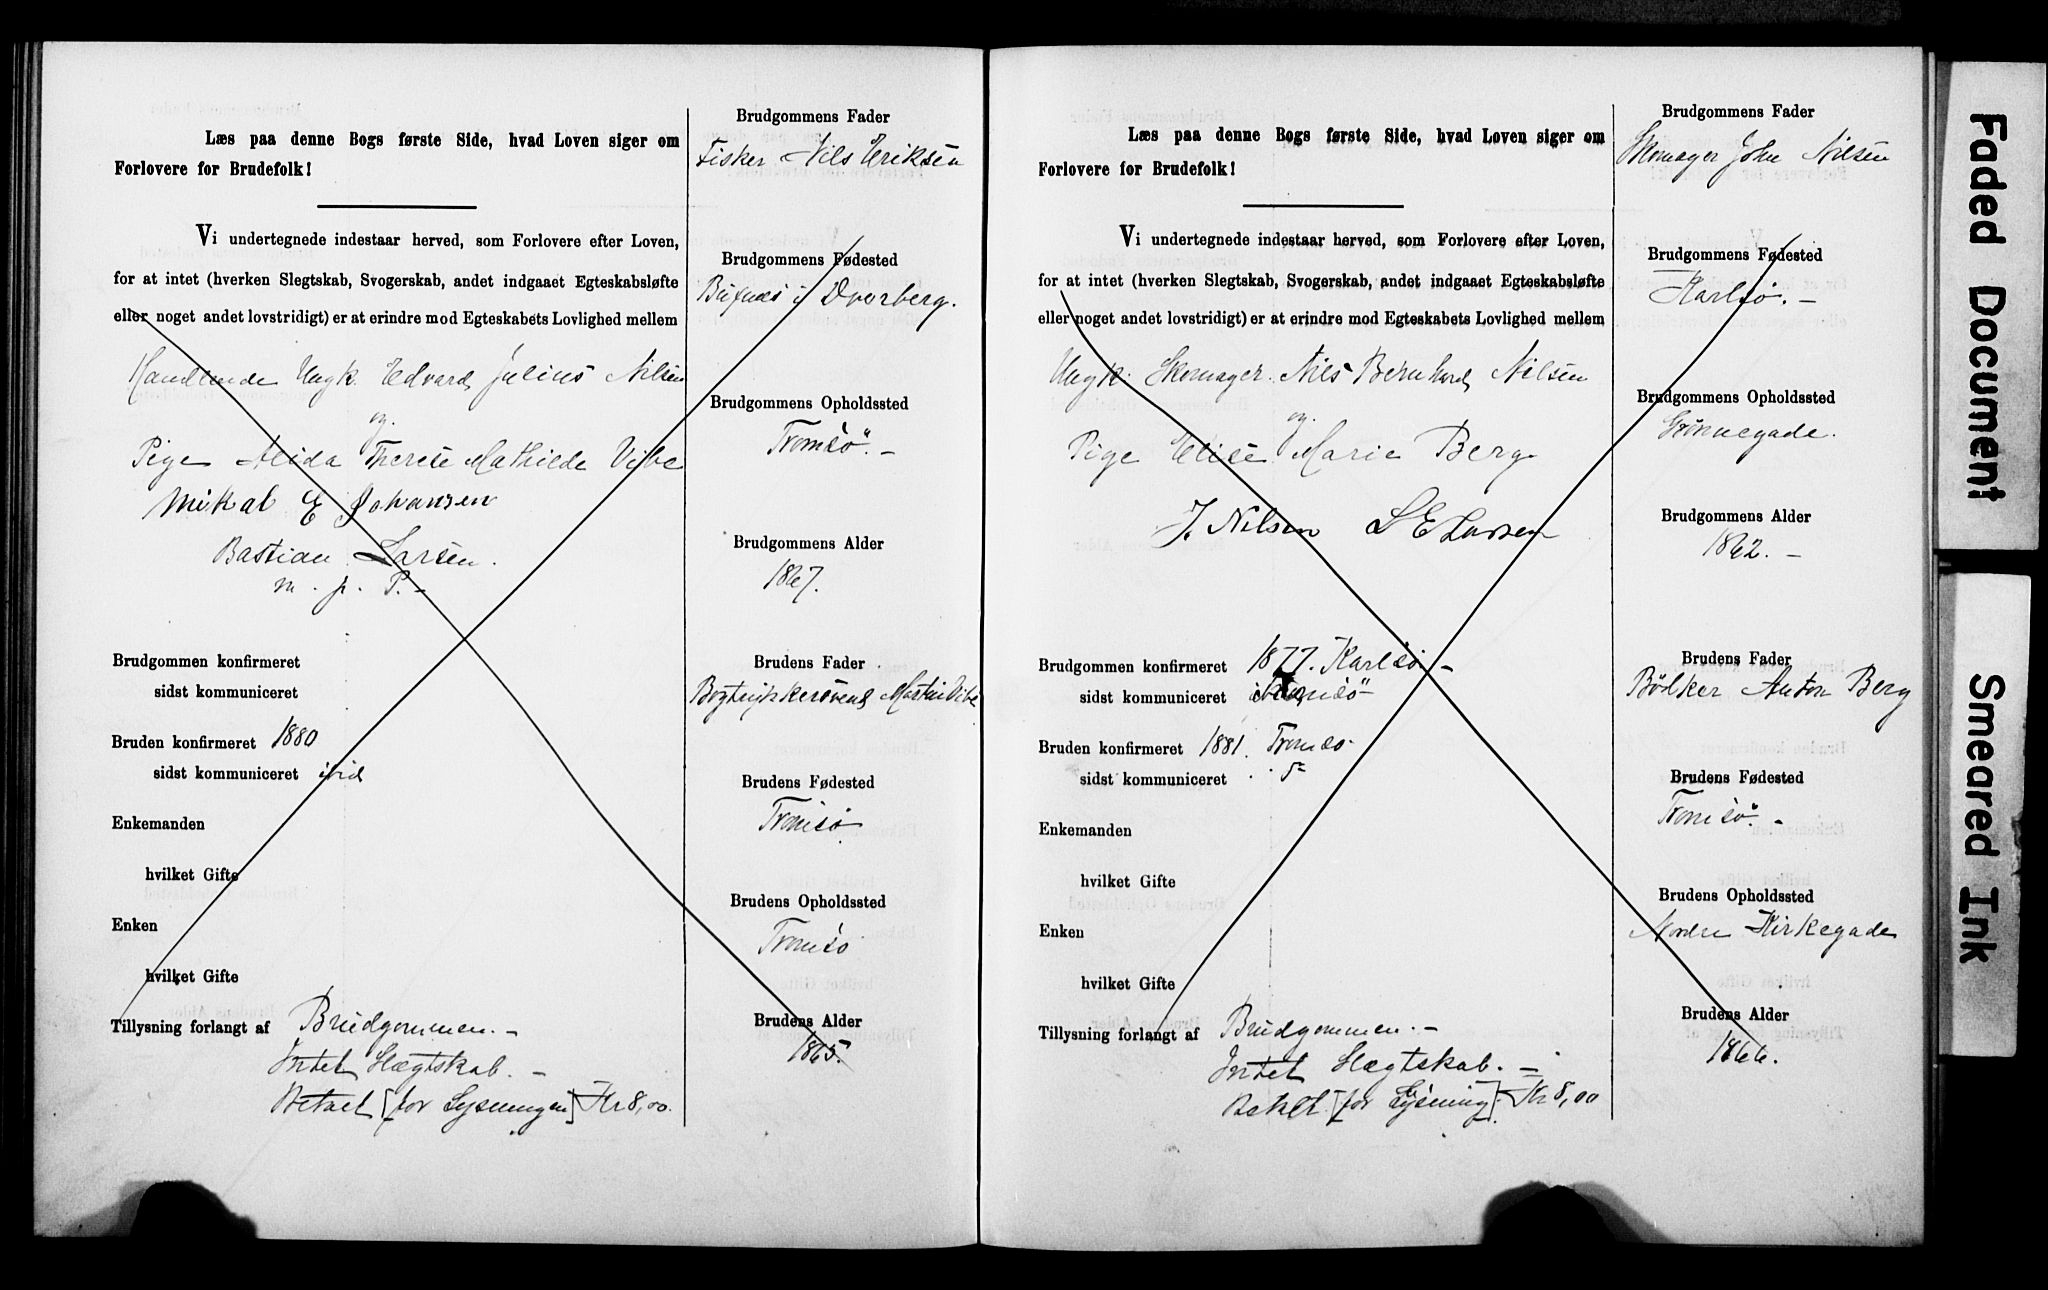 Læs paa denne Bogs første Side, hvad Loven siger om
Forlovere for Brudefolk!
Vi undertegnede indestaar herved, som Forlovere efter Loven,
for at intet (hverken Slegtskab, Svogerskab, andet indgaaet Egteskabsløfte
eller noget andet lovstridigt) er at erindre mod Egteskabets Lovlighed mellem
Handlende Ungk. Edvard Julius Nilsen
og
Pige Alida Therese Mathilde Vibe
Mikal E Johansen
Bastian Larsen.
m. p. P. -
Brudgommen konfirmeret
sidst kommuniceret
Bruden konfirmeret 1880
sidst kommuniceret ibid
Enkemanden
hvilket Gifte
Enken
hvilket Gifte
Tillysning forlangt af Brudgommen. -
Intet Slægtskab. -
Betalt [for Lysningen] Kr 8,00.
Brudgommens Fader
Fisker Nils Eriksen
Brudgommens Fødested
Buxnes i Dverberg.
Brudgommens Opholdssted
Tromsö. -
Brudgommens Alder
1867.
Brudens Fader
Bogtrykkersvend Martin Vibe
Brudens Fødested
Tromsø
Brudens Opholdssted
Tromsø
Brudens Alder
1865.
Læs paa denne Bogs første Side, hvad Loven siger om
Forlovere for Brudefolk!
Vi undertegnede indestaar herved, som Forlovere efter Loven,
for at intet (hverken Slegtskab, Svogerskab, andet indgaaet Egteskabsløfte
eller noget andet lovstridigt) er at erindre mod Egteskabets Lovlighed mellem
Ungk. Skomager Nils Bernhard Nilsen
og
Pige Elise Marie Berg
J. Nilsen L E Larsen
Brudgommen konfirmeret 1877. Karlsø. -
sidst kommuniceret i Tromsö
Bruden konfirmeret 1881. Tromsø
sidst kommuniceret
Enkemanden
hvilket Gifte
Enken
hvilket Gifte
Tillysning forlangt af Brudgommen. -
Intet Slægtskab. -
Betalt [for Lysning]. Kr 8,00
Brudgommens Fader
Skomager John Nilsen
Brudgommens Fødested
Karlsø. -
Brudgommens Opholdssted
Grønnegade.
Brudgommens Alder
1862. -
Brudens Fader
Bödker Anton Berg
Brudens Fødested
Tromsö. -
Brudens Opholdssted
Nordre Kirkegade
Brudens Alder
1866.
Faded Document
Smeared Ink